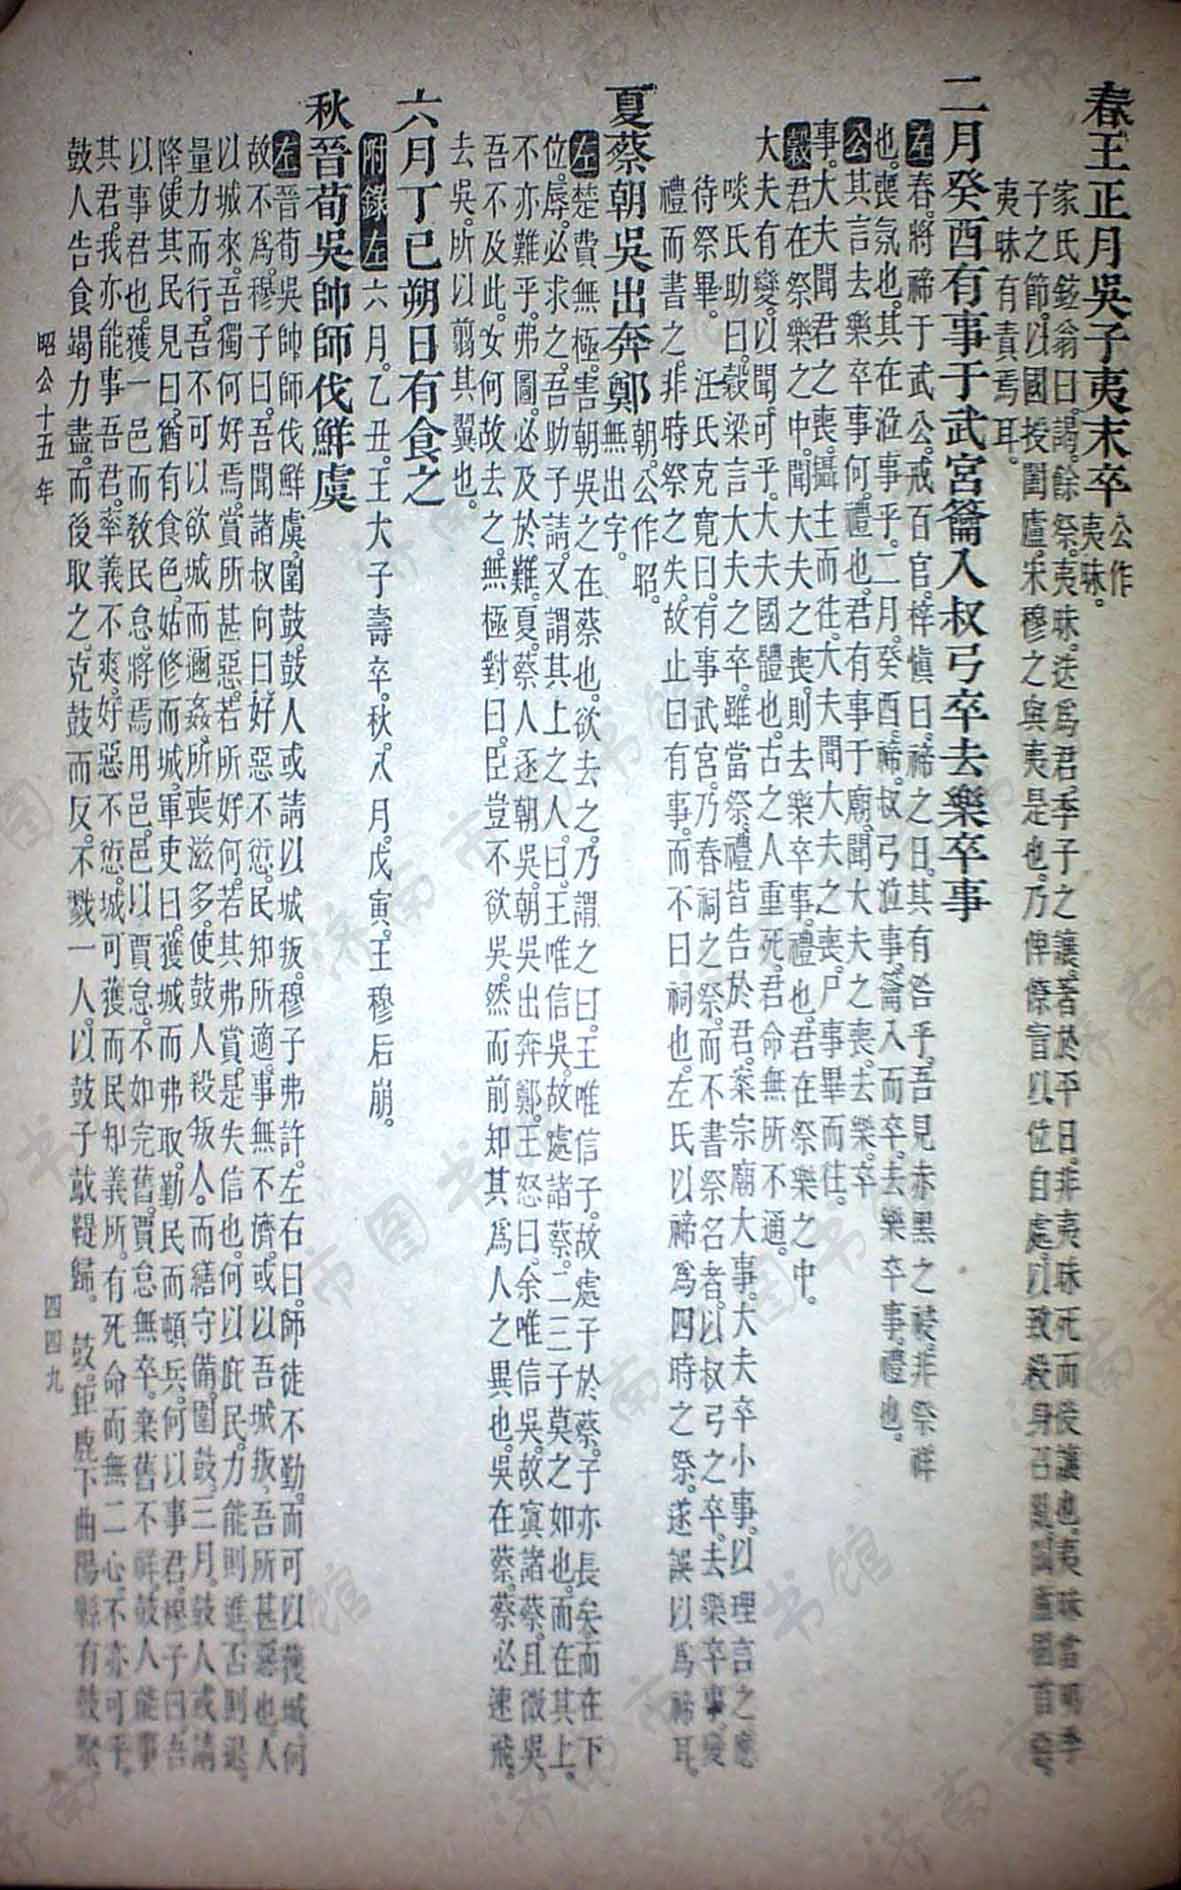 春王正月吳子夷末卒 公作夷昧。
家氏鉉翁曰。謁。餘祭。夷昧。迭爲君。季子之讓。著於平日。非夷昧死而後讓也。夷昧當明季
子之節。以國授闔廬。宋穆之與夷是也。乃俾僚冒以位自處。以致殺身召亂。闔廬
夷昧有責焉耳。
二月癸酉有事于武宮籥入叔弓卒去樂卒事
左 春。將禘于武公。戒百官。梓愼曰。禘之日。其有咎乎。吾見赤黑之祲。非祭祥
也。喪氛也。其在涖事乎。二月。癸酉。禘。叔弓涖事。籥入而卒。去樂卒事。禮也。
公 其言去樂卒事何。禮也。君有事于廟。聞大夫之喪。去樂。卒
事。大夫聞君之喪。攝主而往。大夫聞大夫之喪。尸事畢而往。
穀 君在祭樂之中。聞大夫之喪。則去樂卒事。禮也。君在祭樂之中。
大夫有變。以聞。可乎。大夫國體也。古之人重死。君命無所不通。
啖氏助曰。穀梁言大夫之卒。雖當祭。禮皆告於君。案宗廟大事。大夫卒小事。以理言之。應
待祭畢。 汪氏克寬曰。有事武宮。乃春祠之祭。而不書祭名者。以叔弓之卒。去樂卒事。變
禮而書之。非時祭之失。故止曰有事。而不曰祠也。左氏以禘爲四時之祭。遂誤以爲禘耳。
夏蔡朝吳出奔鄭 朝。公作昭。無出字。
左 楚費無極。害朝吳之在蔡也。欲去之。乃謂之曰。王唯信子。故處子於蔡。子亦長矣。而在下
位。辱。必求之。吾助子請。又謂其上之人。曰。王唯信吳。故處諸蔡。二三子莫之如也。而在其上。
不亦難乎。弗圖。必及於難。夏。蔡人逐朝吳。朝吳出奔鄭。王怒曰。余唯信吳。故寘諸蔡。且微吳。
吾不及此。女何故去之。無極對曰。臣豈不欲吳。然而前知其爲人之異也。吳在蔡。蔡必速飛。
去吳。所以翦其翼也。
六月丁巳朔日有食之
附錄左 六月。乙丑。王大子壽卒。秋。八月。戊寅。王穆后崩。
秋晉荀吳帥師伐鮮虞
左 晉荀吳帥師伐鮮虞。圍鼓。鼓人或請以城叛。穆子弗許。左右曰。師徒不勤。而可以獲城。何
故不爲。穆子曰。吾聞諸叔向曰。好惡不愆。民知所適。事無不濟。或以吾城叛。吾所甚惡也。人
以城來。吾獨何好焉。賞所甚惡。若所好何。若其弗賞。是失信也。何以庇民。力能則進。否則退。
量力而行。吾不可以欲城而邇姦。所喪滋多。使鼓人殺叛人。而繕守備。圍鼓。三月。鼓人或請
降。使其民見曰。猶有食色。姑修而城。軍吏曰。獲城而弗取。勤民而頓兵。何以事君。穆子曰。吾
以事君也。獲一邑而敎民怠。將焉用邑。邑以賈怠。不如完舊。賈怠無卒。棄舊不祥。鼓人能事
其君。我亦能事吾君。率義不爽。好惡不愆。城可獲而民知義所。有死命而無二心。不亦可乎。
鼓人告食竭力盡。而後取之。克鼓而反。不戮一人。以鼓子䳒鞮歸。 鼓。鉅鹿下曲陽縣有鼓聚
昭公十五年
四四九